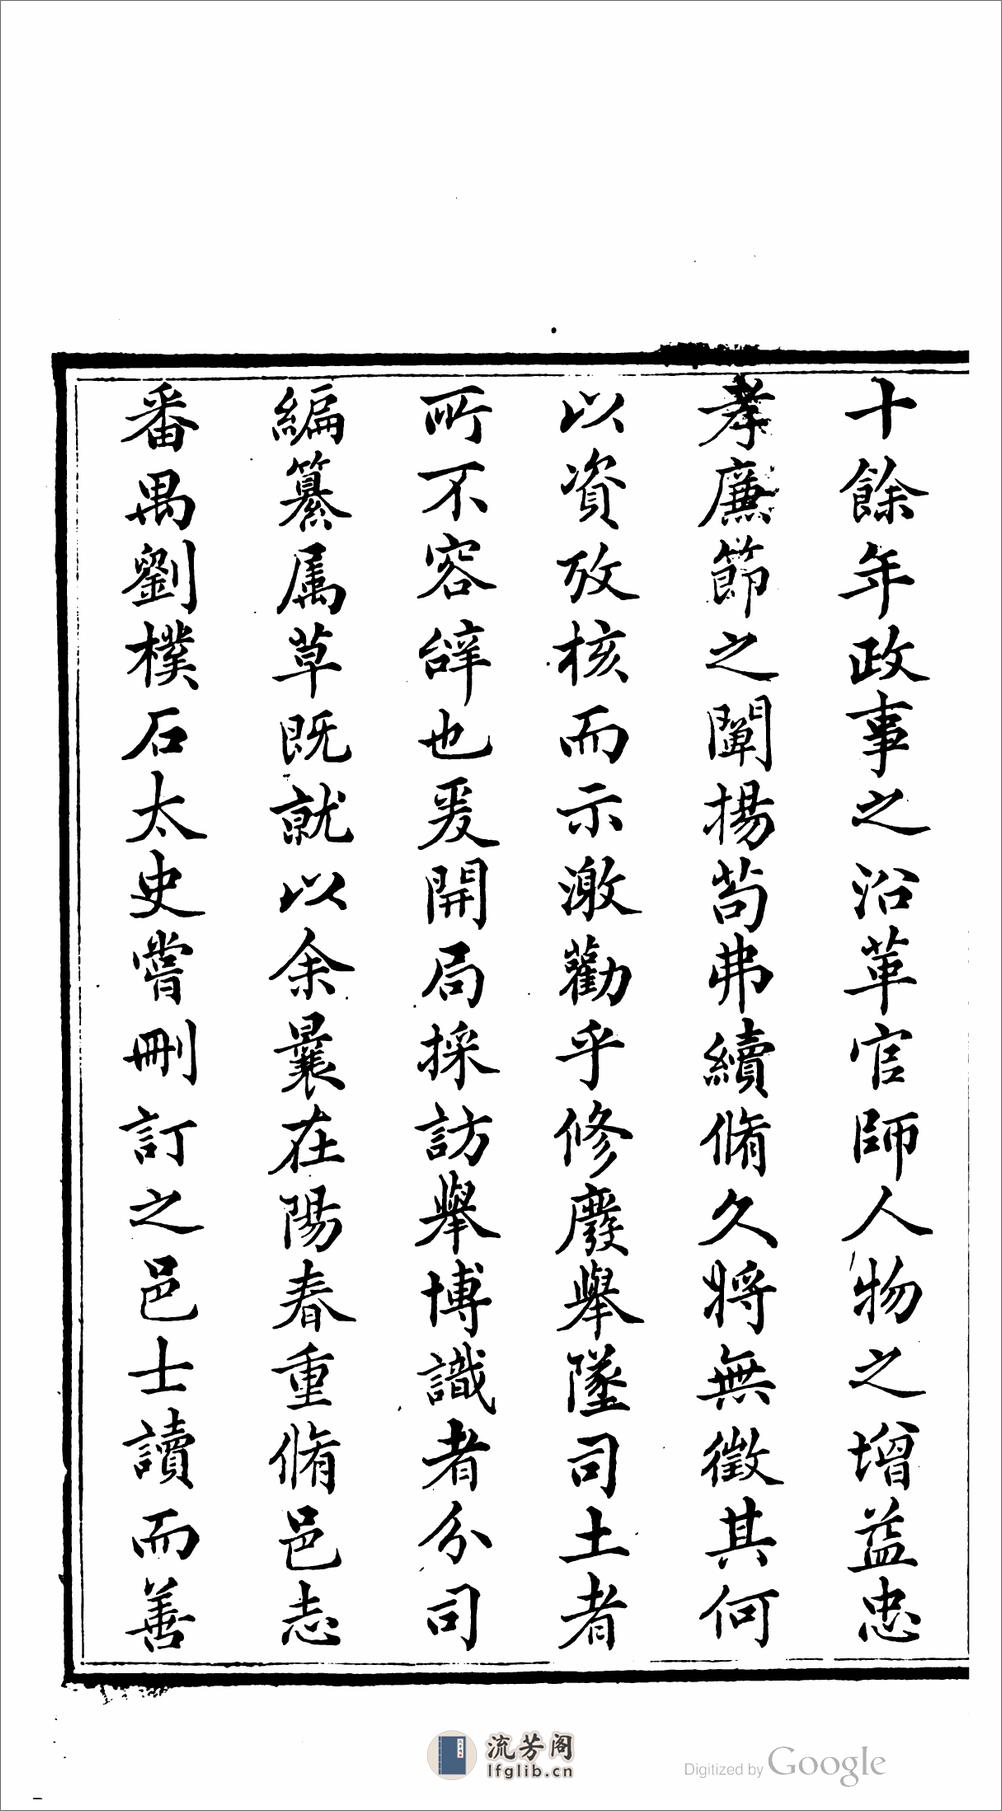 十餘年政事之沿革官師人物之增益忠
孝廉節之闡揚苟弗續脩久將無徵其何
以資攷核而示激勸乎修廢舉墜司土者
所不容辞也爰開局採訪舉博識者分司
編纂属草既就以余曩在陽春重脩邑志
番禺劉樸石太史嘗刪訂之邑士讀而善
流芳阁
lfglib.cn
Digitized by Google